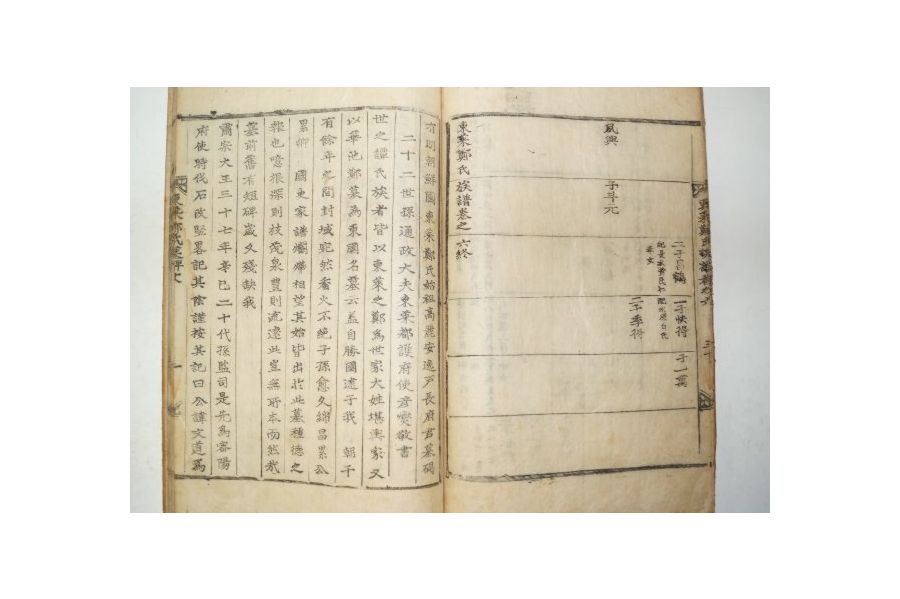 夙興
子斗元
二子昌鶴
一子快得
二子季得
子一萬
東萊鄭氏族譜卷之六終
有明朝鮮國東萊鄭氏始祖高麗安逸戶長府君墓碣
二十二世孫通政大夫東萊都護府使彦燮敬書
世之譚氏族者皆以東萊之鄭爲世家大姓堪輿家又
以華池鄭墓爲東國名墓云盖自勝國逮于我 朝千
有餘年之間封域宛然香火不絶子孫愈久綿昌累公
累卿 國史家譜爛 相望其始皆出於此墓種德之
報也噫根深則枝茂泉豊則流遠此豈無所本而然哉
墓前舊有短碑歲久殘缺我
肅宗大王三十七年辛巳二十代孫監司是先爲 陽
府使時伐石改竪畧記其陰謹按其記曰公諱文道爲
東萊鄭氏墓碑文 一